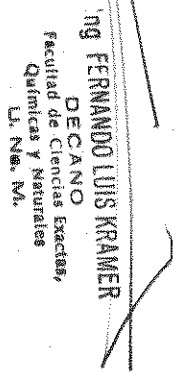 ng FERNANDO LUIS KRAMER
DECANO
Facultad de Ciencias Exactas,
Químicas y Naturales
U. Na. M.